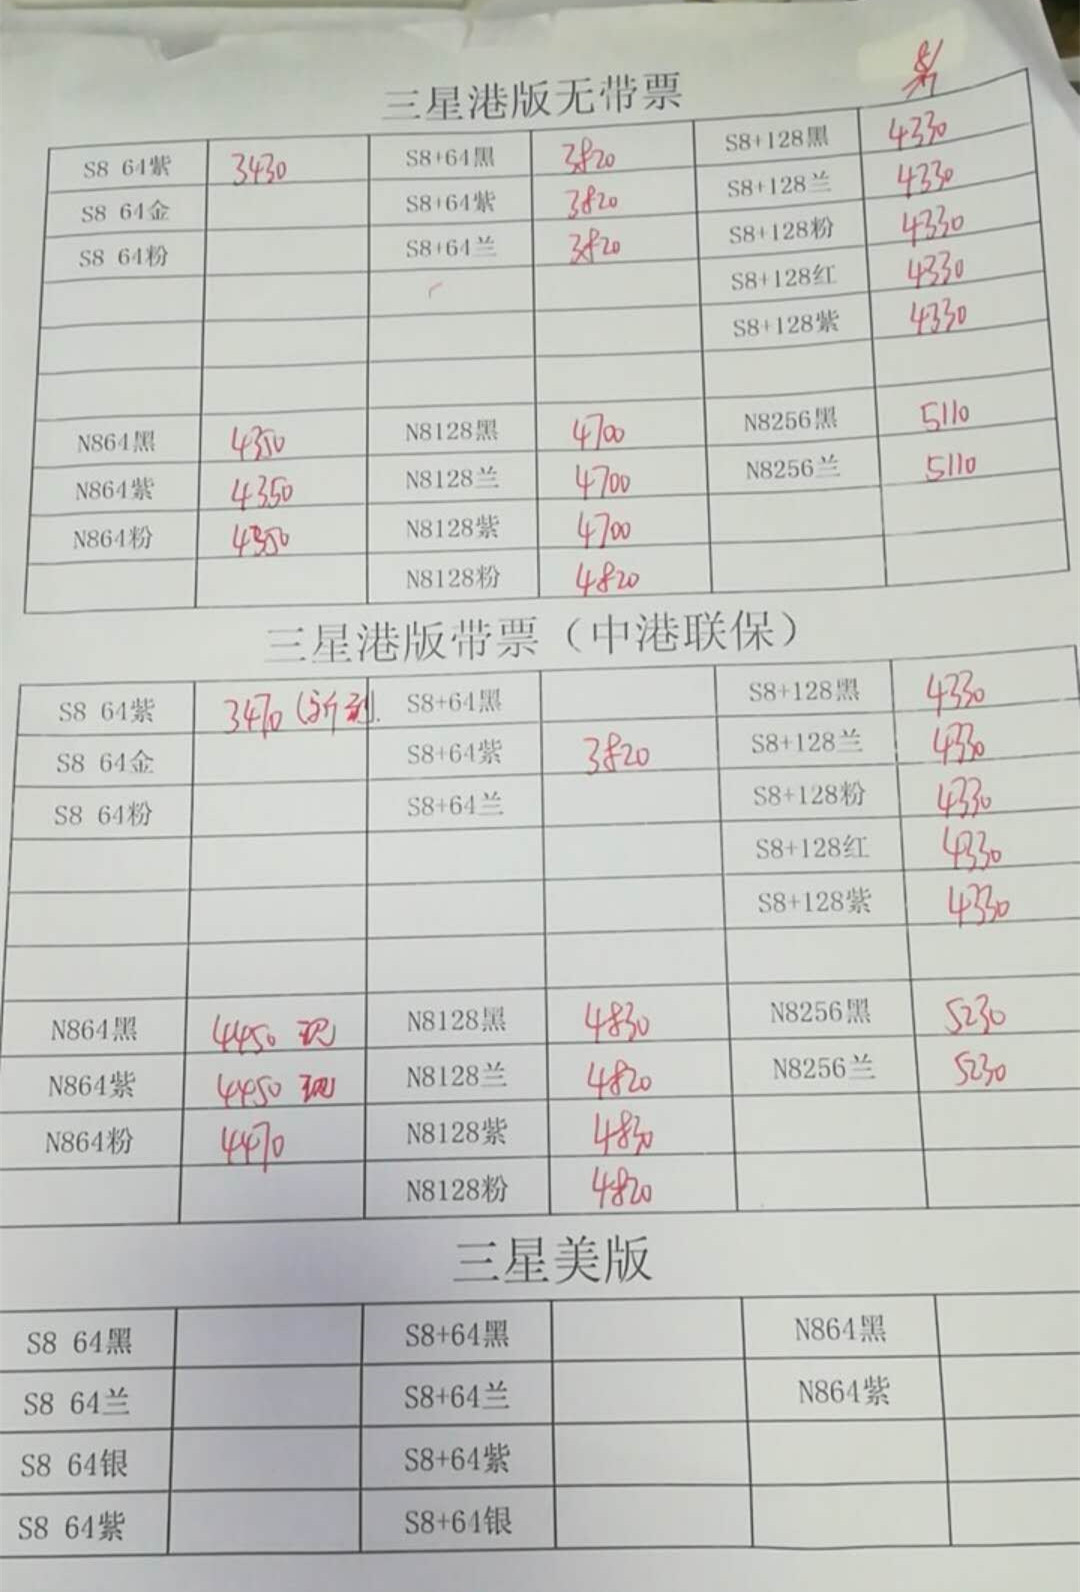 三星港版无带票
S8 64紫 3430 S8+64黑 3820 S8+128黑 4330
S8 64金 S8+64紫 3820 S8+128兰 4330
S8 64粉 S8+64兰 3820 S8+128粉 4330
S8+128红 4330
S8+128紫 4330
N864黑 4350 N8128黑 4700 N8256黑 5110
N864紫 4350 N8128兰 4700 N8256兰 5110
N864粉 4350 N8128紫 4700
N8128粉 4820
三星港版带票（中港联保）
S8 64紫 3470 S8+64黑 S8+128黑 4330
S8 64金 S8+64紫 3820 S8+128兰 4330
S8 64粉 S8+64兰 S8+128粉 4330
S8+128红 4330
S8+128紫 4330
N864黑 4450 现 N8128黑 4830 N8256黑 5230
N864紫 4450 现 N8128兰 4820 N8256兰 5230
N864粉 4470 N8128紫 4830
N8128粉 4820
三星美版
S8 64黑 S8+64黑 N864黑
S8 64兰 S8+64兰 N864紫
S8 64银 S8+64紫
S8 64紫 S8+64银